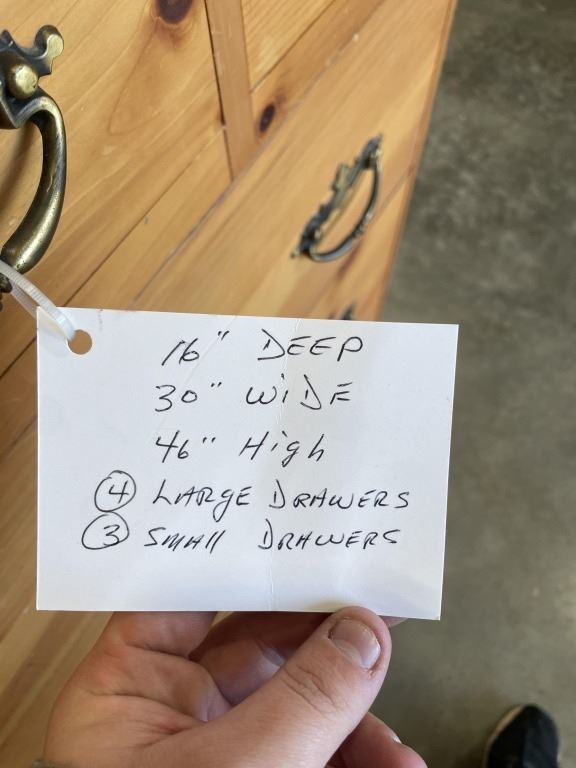 16" DEEP
30" WiDE
46" High
④ LARGE DRAWERS
③ SMAll DRAWERS